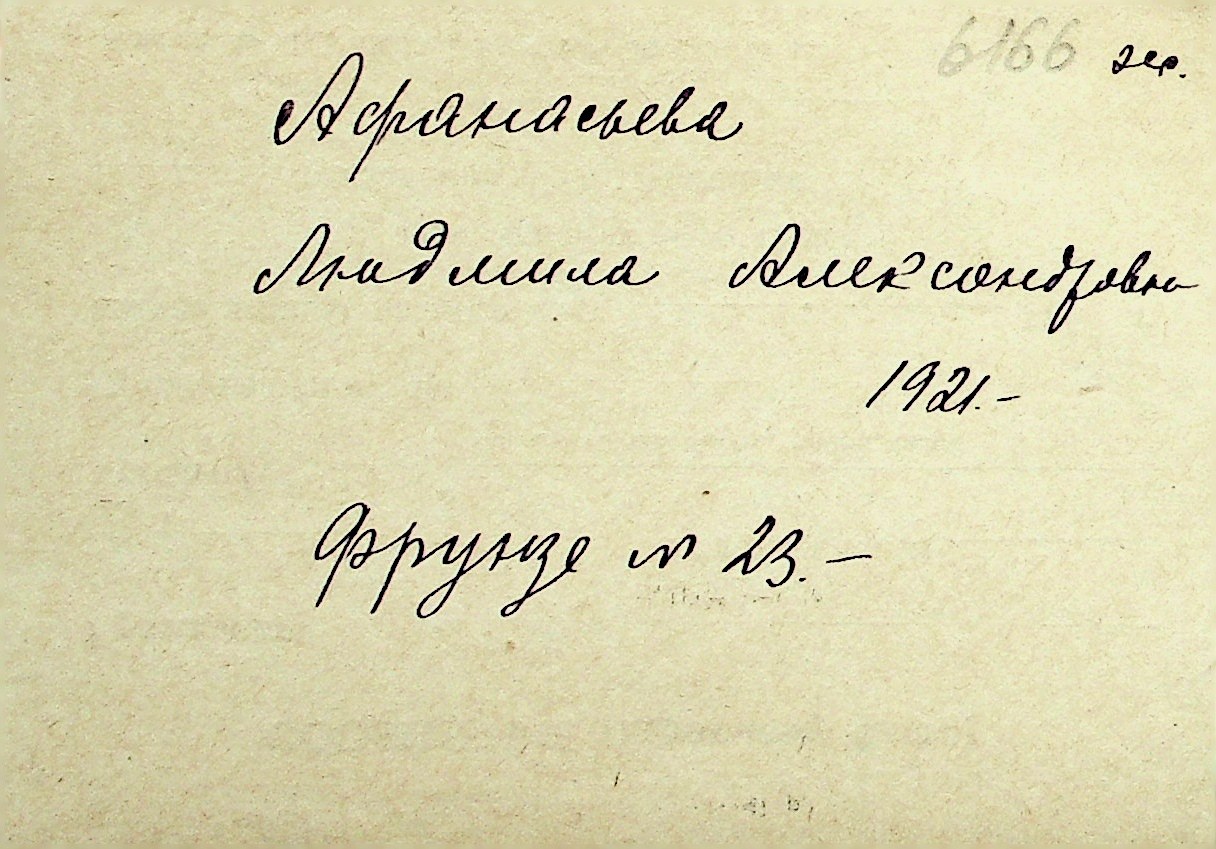 6166
Афанасьева
Людмила Александровна
1921.-
Фрунзе № 23.-